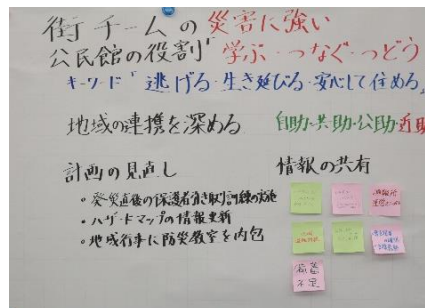 街チームの災害に強い
公民館の役割「学ぶ・つなぐ・つどう
キーワード「逃げる・生き延びる・安心して住める」
地域の連携を深める 自助・共助・公助・近助
計画の見直し 情報の共有
・発災直後の保護者引き取り訓練の実施
・ハザードマップの情報更新
・地域行事に防災教室を内包
備蓄
不足